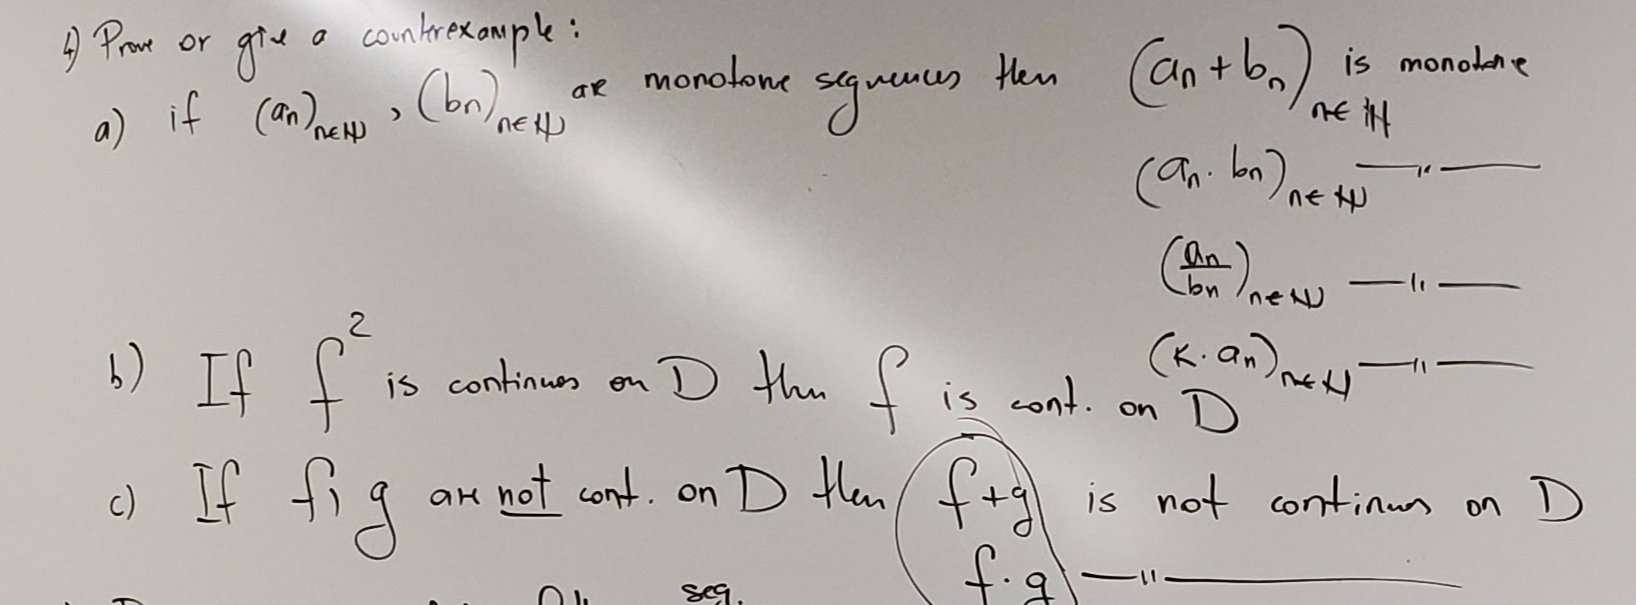 4) Prove or give a counterexample:
a) if (an)n∈ℕ, (bn)n∈ℕ are monotone sequences then (an + bn)n∈ℕ is monotone
(an · bn)n∈ℕ —"—
(an/bn)n∈ℕ —"—
(k · an)n∈ℕ —"—
b) If f² is continuos on D then f is cont. on D
c) If f, g are not cont. on D then f+g is not continuos on D
f·g —"—
seq.